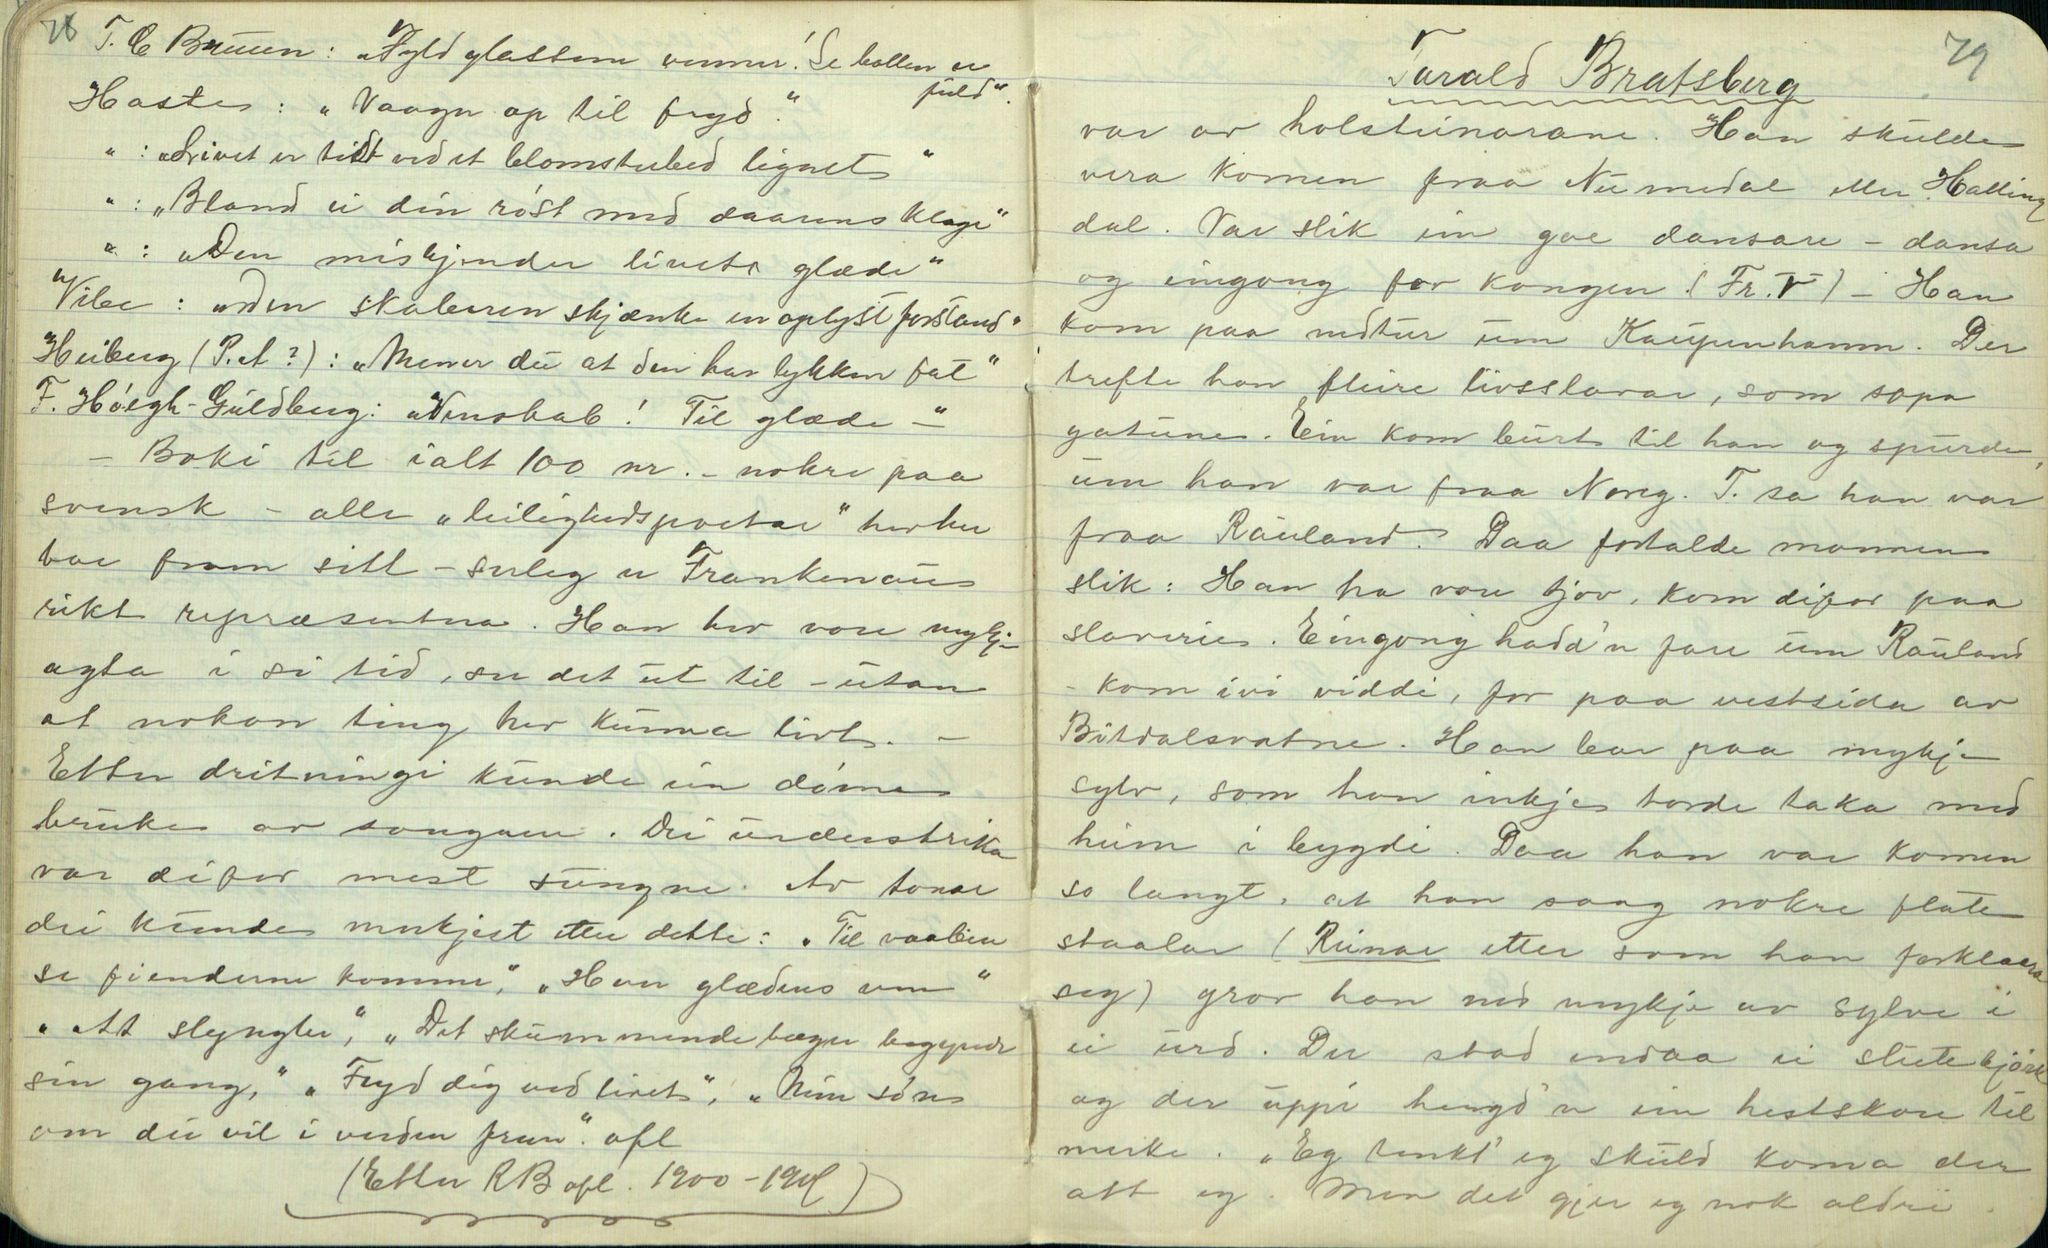 78
T. C Bruun: „Fyld glassene venner! Se bollen er
fuld“.
Haste: „Vaagn op til fryd.“
„ : „Livet er tidt ved et blomsterbed lignet“
„ : „Bland ei din röst med daarens klage“
„ : „Den miskjender livets glæde“
Vibe: „Den skaberen skjænke en oplyst forstand“
Heiberg (P. A?): „Mener du at den har lykken fat“
F. Höegh-Guldberg: „Venskab! Til glæde –“
– Boki til ialt 100 nr. – nokre paa
svensk – alle „leilighedspoetar“ hev her
fram sitt – serleg er Frankenaus
rikt repræsentera. Han hev vore mykje
agta i si tid, ser det ut til – utan
at nokon ting hev kunna livt. –
Etter dritningi kunde ein döme
bruken av songane. Dei understrika
var difor mest sungne. Av tonar
dei kunde merkjest etter dette: „Til vaaben
se fienderne komme“, „Hver glædens ven“
„At slyngler“, „Det skummende bæger begynder
sin gang,“ „Fryd dig ved livet“, „Min sön
om du vil i verden frem“. ofl
(Etter RB ofl. 1900-1901)
79
Tarald Bratsberg
var av holsteinarane. Han skulde
vera komen fraa Numedal eller Halling
dal. Var slik ein goe dansare – dansa
og eingong for kongen (Fr. V) – Han
kom paa nedtur um Kaupenhamn. Der
trefte han fleire livsslavar, som sopa
gatune. Ein kom burt til han og spurde,
um han var fraa Noreg. T. sa han var
fraa Rauland. Daa fortalde mannen
slik: Han ha vore tjov, kom difor paa
slaveriet. Eingong hadd'n fare um Rauland
– kom ivi viddi, for paa vestsida av
Bitdalsvatne. Han bar paa mykje
sylv, som han inkje torde taka med
heim i bygdi. Daa han var komen
so langt, at han saag nokre flate
staalar (Reinar etter som han forklaara
seg) grov han ned mykje av sylve i
ei urd. Der stod endaa ei slute bjórk
og der uppi hengd'n ein hestskore til
merke. „Eg tenkt' eg skuld koma der
att eg. Men det gjer eg nok aldri.